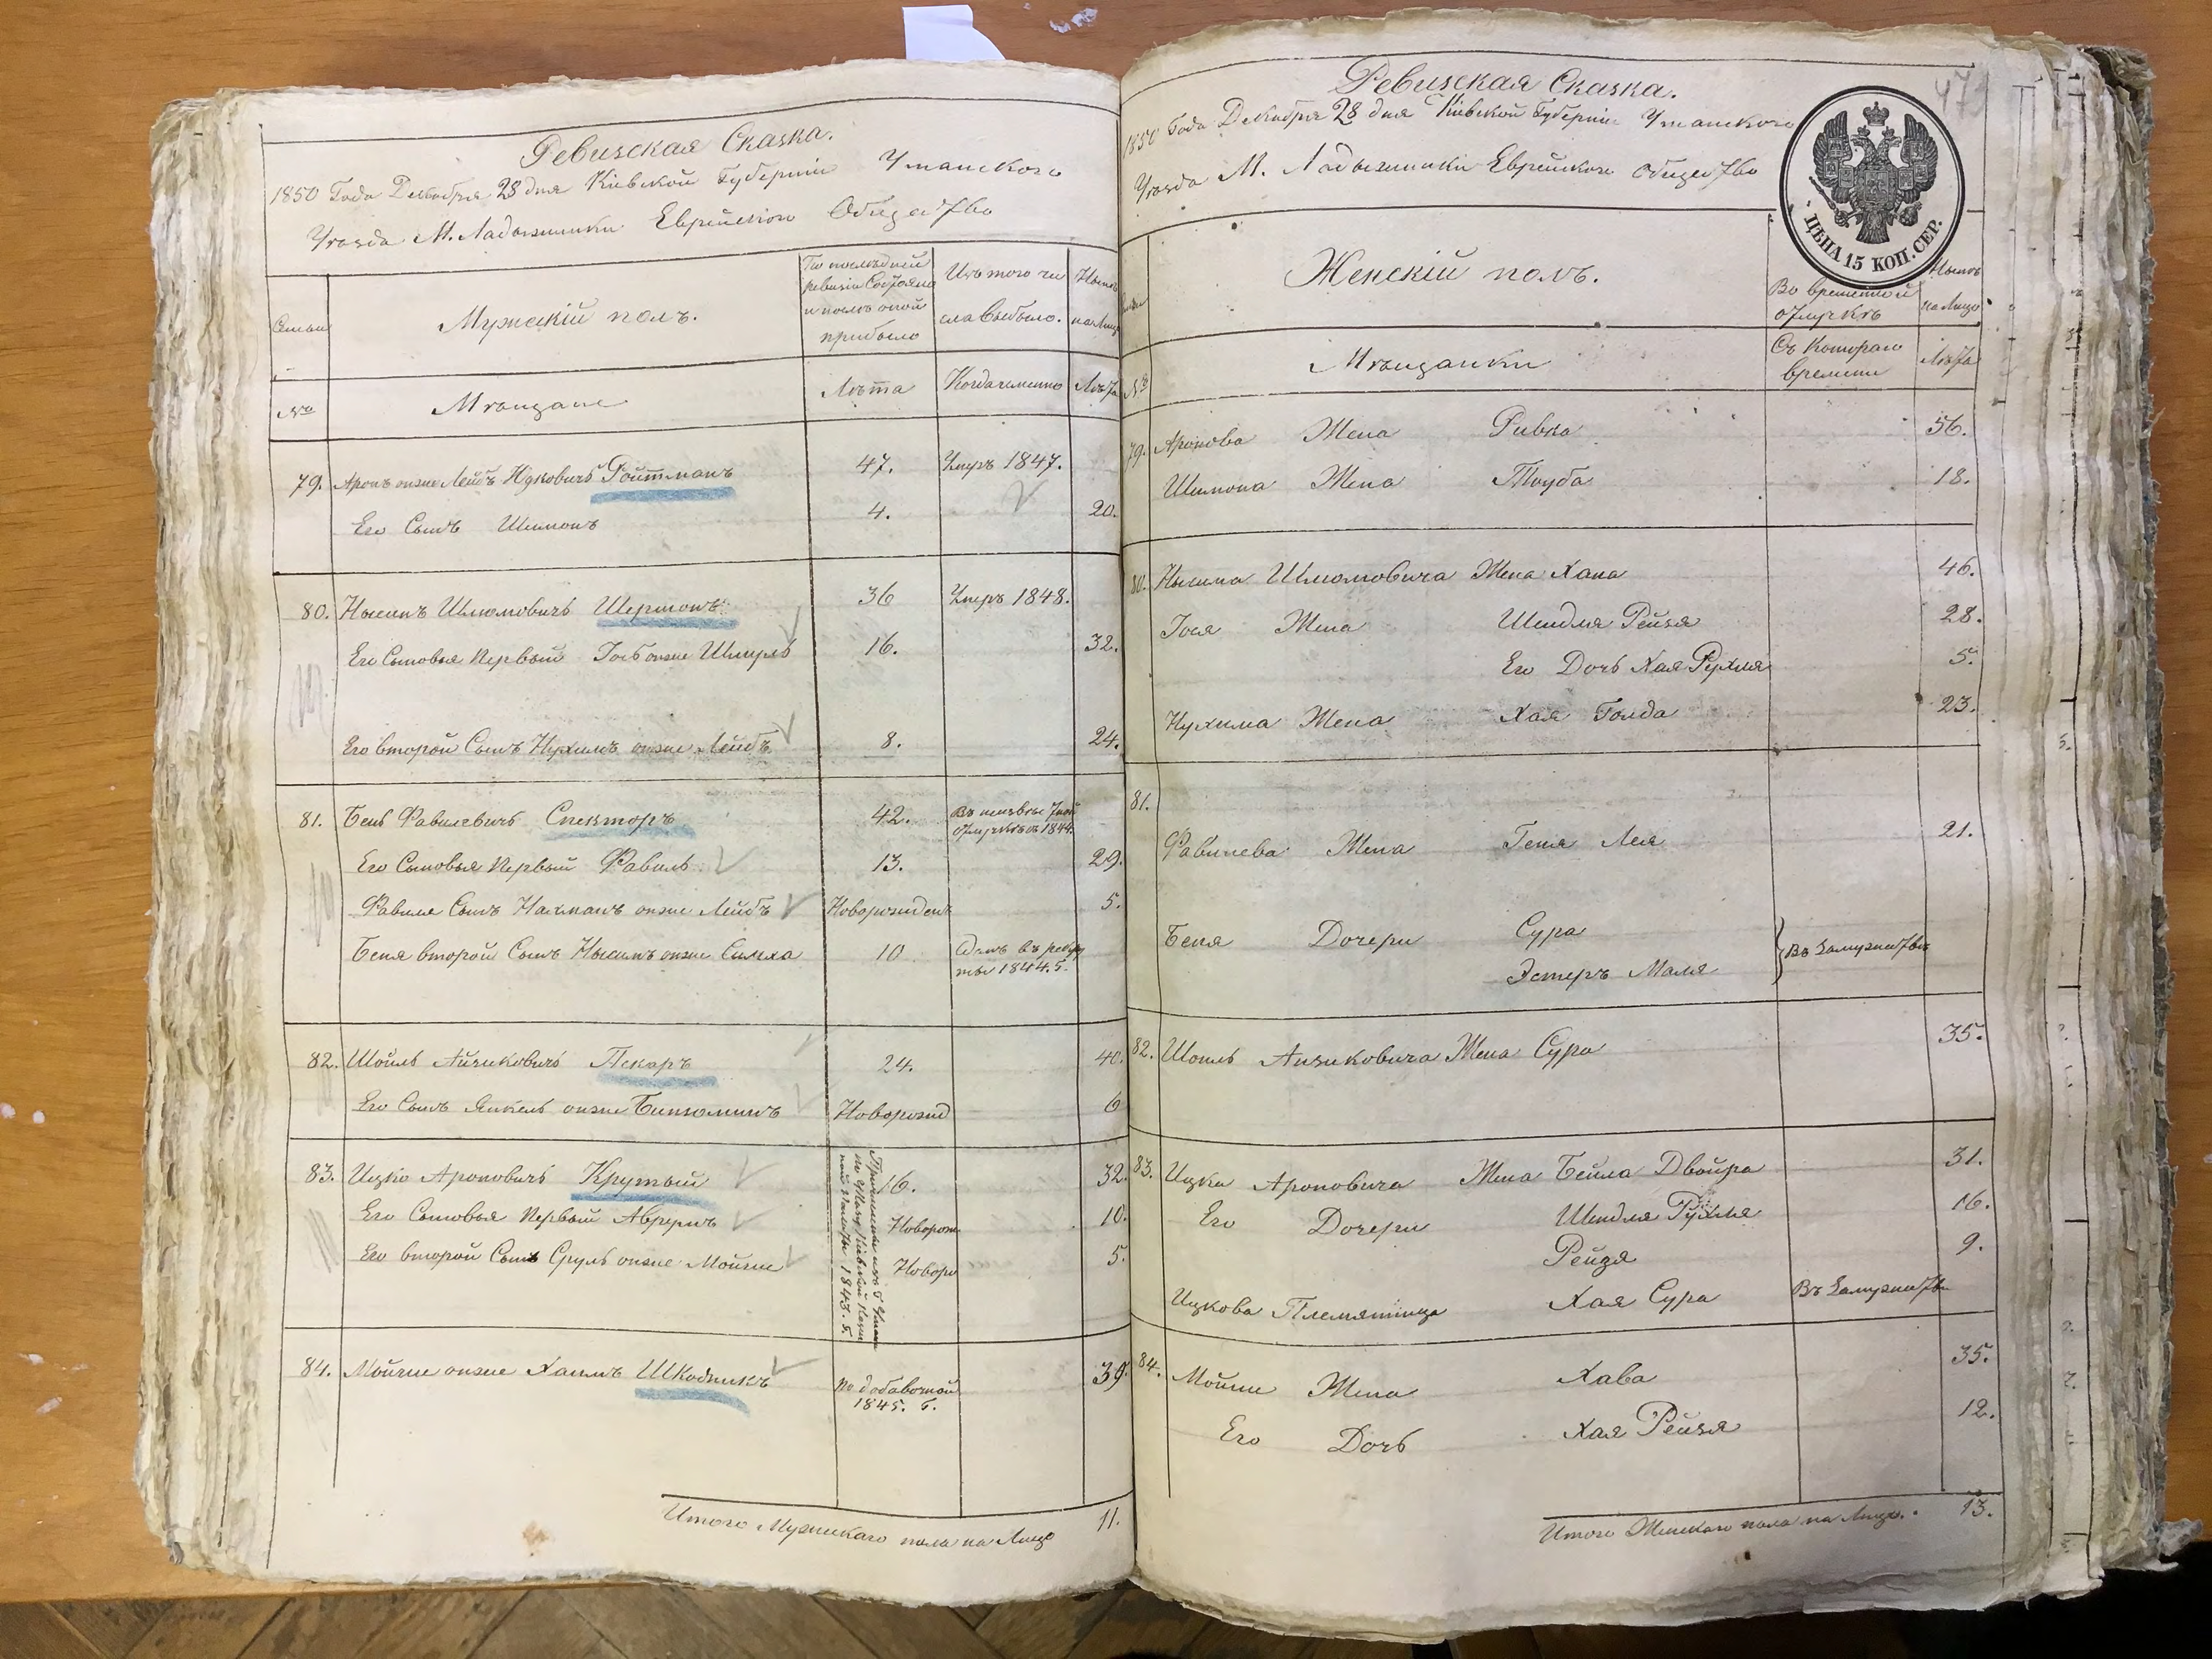 Ревизская Сказка.
1850 Года Декабря 28 дня Кіевской Губерніи Уманскаго
Уѣзда М. Ладыжинки Еврейскаго Общества
Семьи
Мужескій полъ.
По послѣдней
ревизіи Состояло
и послѣ оной
прибыло
Изъ того чи
сла выбыло.
Нынѣ
на Лицо
№
Мѣщане
Лѣта
Когда именно
Лѣта
79. Аронъ онже Лейбъ Юдковичъ Ройтманъ 47. Умеръ 1847.
Его Сынъ Шимонъ 4. 20.
80. Нысинъ Шлюмовичъ Шермонъ 36 Умеръ 1848.
Его Сыновья Первый Іось онже Шмерль 16. 32.
Его второй Сынъ Нухимъ онже Лейбъ 8. 24.
81. Бень Фавилевичъ Спекторъ 42. Въ неизвѣстной
отлучкѣ съ 1844.
Его Сыновья Первый Фавиль 13. 29.
Фавиля Сынъ Нахманъ онже Лейбъ Новорожден 5.
Беня второй Сынъ Нысинъ онже Симха 10 Сданъ въ рекру
ты 1844. г.
82. Шоиль Айзиковичъ Пекаръ 24. 40.
Его Сынъ Янкель онже Биньоминъ Новорожд 6
83. Ицко Ароновичъ Крутый 16. 32.
Его Сыновья Первый Аврумъ Неворож 10.
Его второй Сынъ Сруль онже Мойше Новоро 5.
1843. г.
84. Мойше онже Хаимъ Шкодникъ по добавочной 39.
1845. г.
Итого Мужескаго пола на Лицо 11.
47
Ревизская Сказка.
1850 Года Декабря 28 дня Кіевской Губерніи Уманского
Уѣзда М. Ладыжинки Еврейскаго Общества
ЦѢНА 15 КОП. СЕР.
Женскій полъ.
Во временной
отлучкѣ
Нынѣ
на Лицо
№
Мѣщанки
Съ Котораго
времени
Лѣта
79. Аронова Жена Ривка 56.
Шимона Жена Тауба 18.
80. Нысина Шлюмовича Жена Хана 46.
Іося Жена Шендля Рейзя 28.
Его Дочь Хая Рухля 5.
Нухима Жена Хая Голда 23.
81.
Фавилева Жена Геня Лея 21.
Беня Дочери Сура
Эстеръ Маля
Въ Замужествѣ
82. Шоиль Айзиковича Жена Сура 35.
83. Ицка Ароновича Жена Бейла Двойра 31.
Его Дочери Шендля Рухля 16.
Рейзя 9.
Ицкова Племянница Хая Сура Въ Замужеств
84. Мойши Жена Хава 35.
Его Дочь Хая Рейзя 12.
Итого Женскаго пола на Лицо. 13.